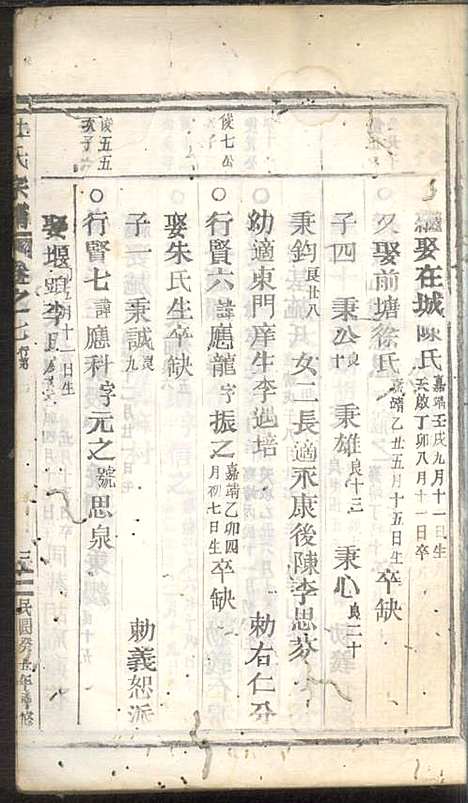 繼娶在城陳氏 嘉靖壬戌九月十一日生 天啟丁卯八月十一日卒
又娶前塘徐氏 嘉靖乙丑五月十五日生 卒缺
子四 秉公良十 秉雄良十三 秉心良二十
秉鈞良廿八 女二長適永康後陳李思芬
幼適東門庠生李遇培 勅右仁派
俊七公
○行賢六諱應龍字振之 嘉靖乙卯四月初七日生 卒缺
娶朱氏生卒缺
子一 秉誠良九 勅義恕派
俊五五
次子
○行賢七諱應科字元之號思泉
娶堰頭李氏 五月十一日生
氏宗譜 卷之七 行第 民國癸 年重修